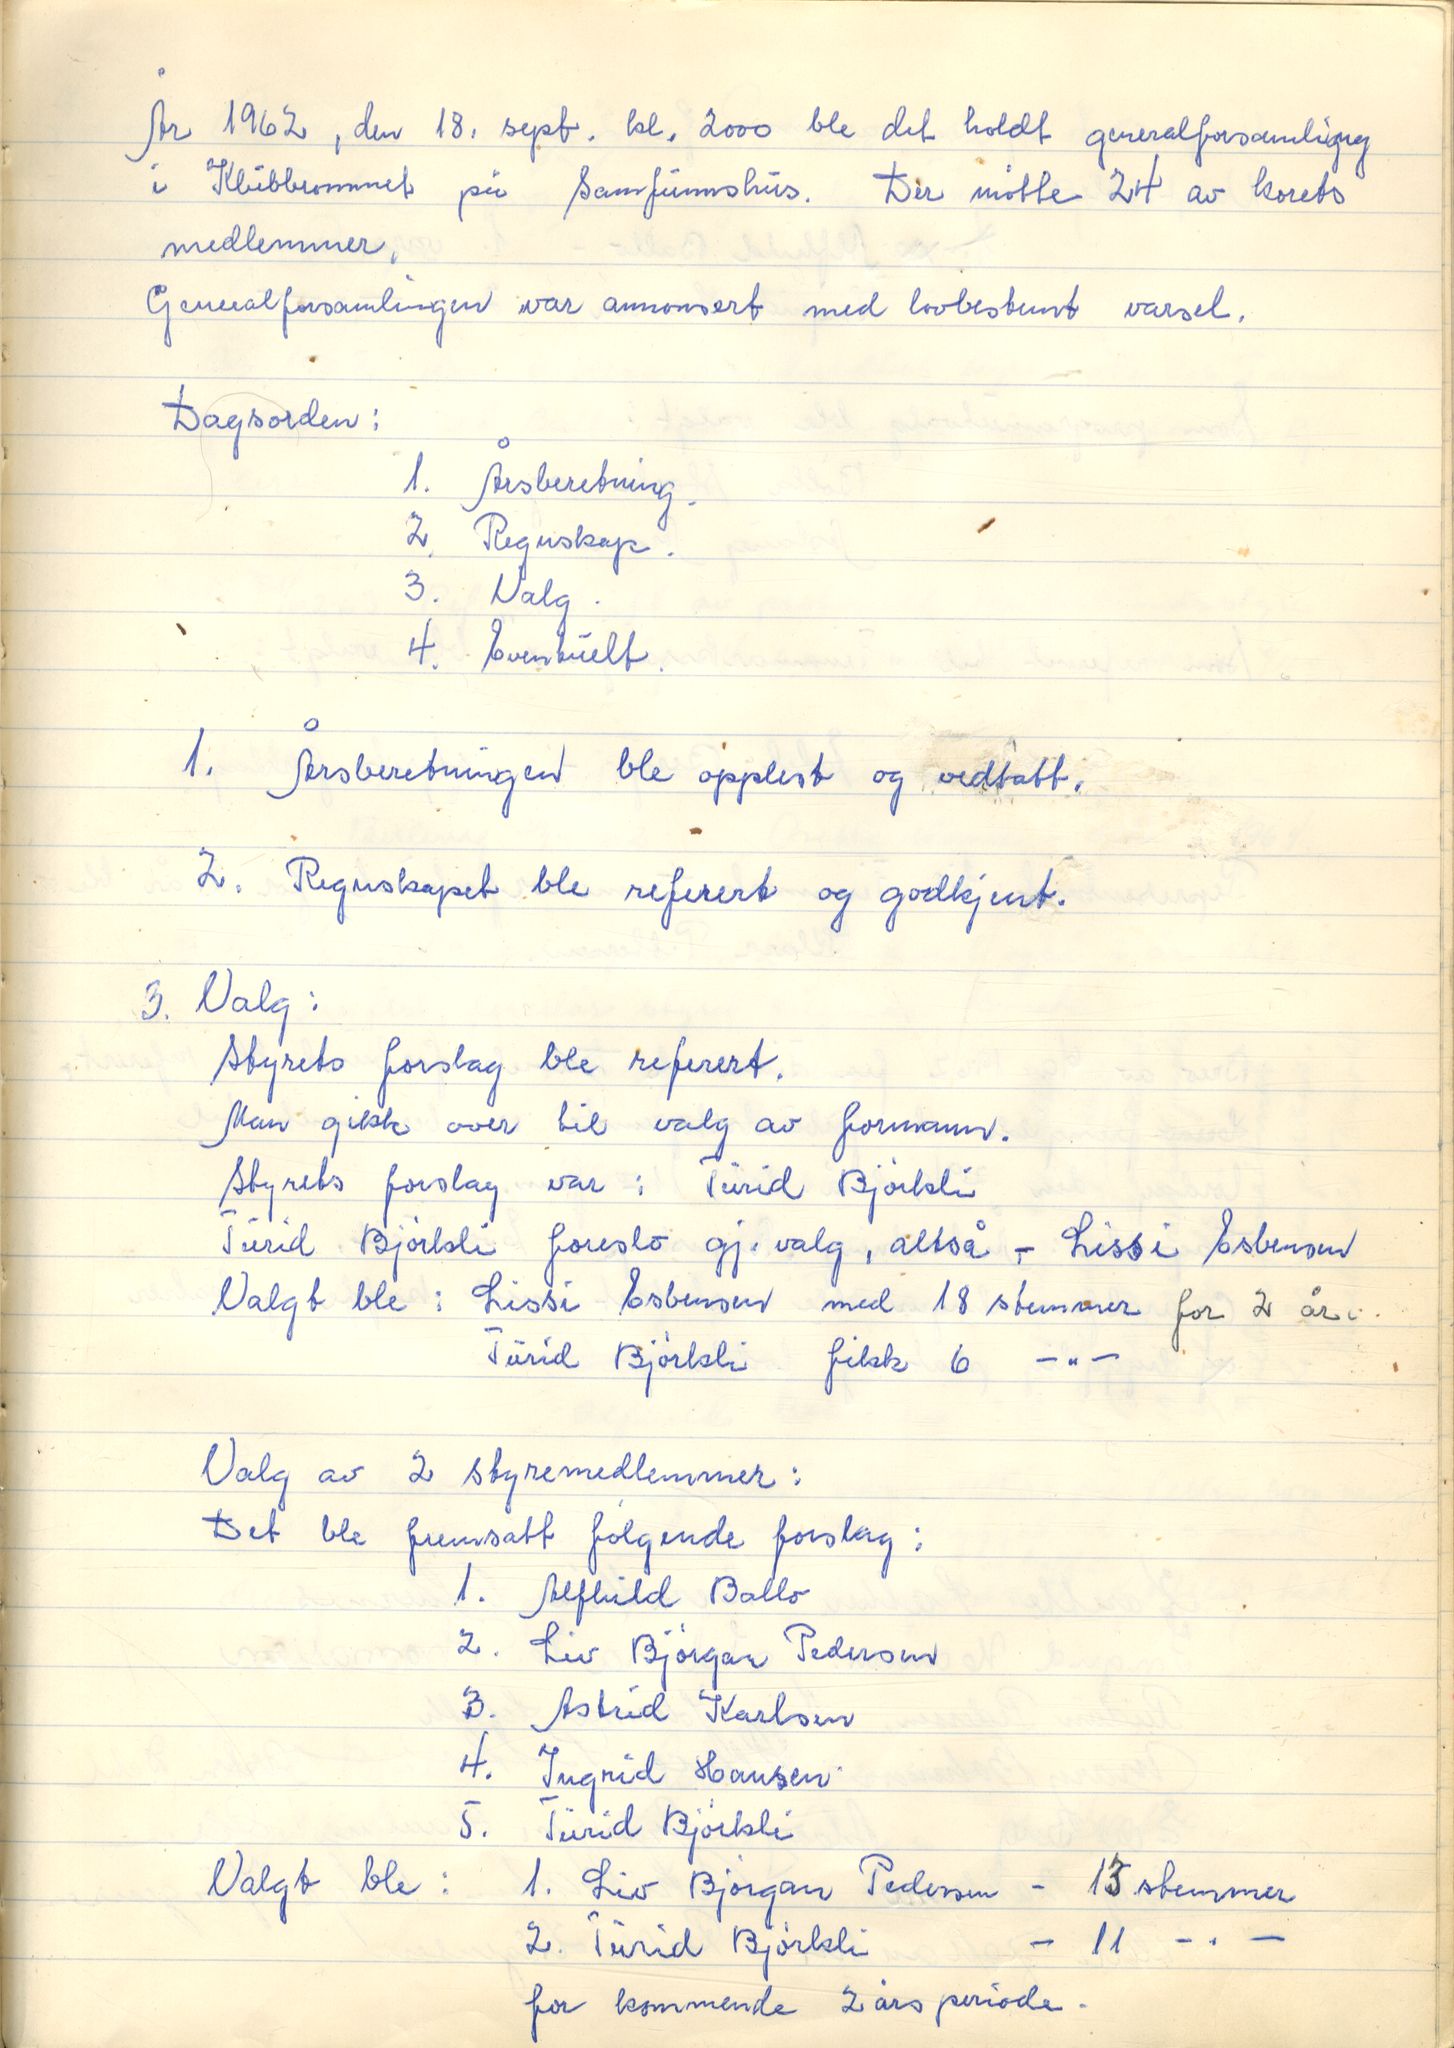 År 1962, den 18. sept. kl. 2000 ble det holdt generalforsamling
i Klubbrommet på Samfunnshus. Der møtte 24 av korets
medlemmer.
Generalforsamlingen var annonsert med lovbestemt varsel.
Dagsorden:
1. Årsberetning.
2. Regnskap.
3. Valg.
4. Eventuelt.
1. Årsberetningen ble opplest og vedtatt.
2. Regnskapet ble referert og godkjent.
3. Valg:
Styrets forslag ble referert.
Man gikk over til valg av formann.
Styrets forslag var: Turid Bjørkli
Turid Bjørkli foreslo gj.valg, altså - Lissi Esbensen
Valgt ble: Lissi Esbensen med 18 stemmer for 2 år.
Turid Bjørkli fikk 6 -"-
Valg av 2 styremedlemmer:
Det ble fremsatt følgende forslag:
1. Alfhild Ballo
2. Liv Bjørgan Pedersen
3. Astrid Karlsen
4. Ingrid Hansen
5. Turid Bjørkli
Valgt ble: 1. Liv Bjørgan Pedersen - stemmer
2. Turid Bjørkli - 11 -"-
for kommende 2 årsperiode.